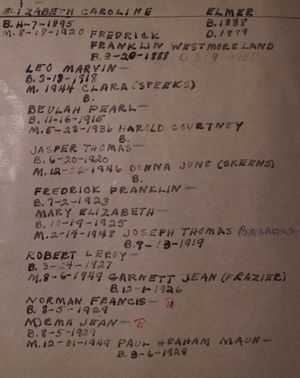 ELIZABETH CAROLINE ELMER
B. 4-7-1895 B. 1888
M. 8-18-1920 FREDRICK D. 1889
FRANKLIN WESTMORELAND
B. 3-20-1888 D. 3-9-1957
LEO MARVIN-
B. 3-18-1918
M. 1944 CLARA (SPEEKS)
B.
BEULAH PEARL-
B. 11-16-1915
M. 5-23-1936 HAROLD COURTNEY
B.
JASPER THOMAS-
B. 6-20-1920
M. 12-22-1946 DONNA JUNE (SKEENS)
B.
FREDRICK FRANKLIN-
B. 7-2-1923
MARY ELIZABETH-
B. 10-19-1925
M. 2-14-1948 JOSEPH THOMAS
B. 9- 13-1919
ROBERT LEROY-
B. 3-24-1927
M. 8-6-1949 GARNETT JEAN (FRAZIER)
B. 12-1-1926
NORMAN FRANCIS-
B. 8-5-1929
NORMA JEAN-
B. 8-5-1929
M. 12-31-1949 PAUL GRAHAM MAUN-
B. 3-6-1928